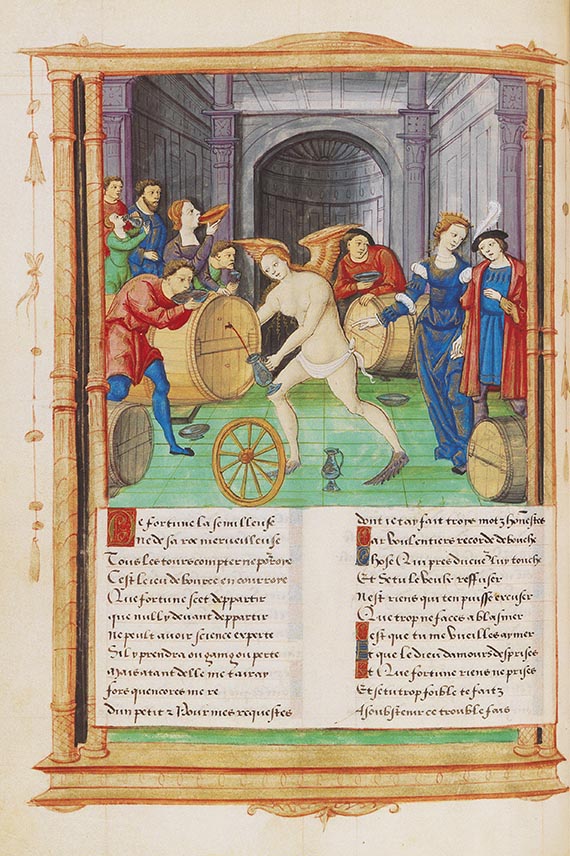 De fortune la semilleuse
ne de sa roe merveilleuse
Tous les tours compter ne porroye
Cest le ieu de boute en courroye
Que fortune scet departir
que nully devant departir
ne peult avoir science experte
Sil y prendra ou gaing ou perte
Mais atant delle me tairay
fors quencores me re
dun petit Pour mes requestes
dont ie tay fait troys motz honestes
Car voulentiers recorde bouche
Chose Qui pres du cueur luy touche
Et se tu le veulx reffuser
Nest riens qui ten puisse excuser
Que trop ne faces a blasmer
Cest que tu me vueilles aymer
Et que le dieu damours desprises
Et Que fortune riens ne prises
Et se tu trop foible te faitz
A soubstenir ce trouble fais